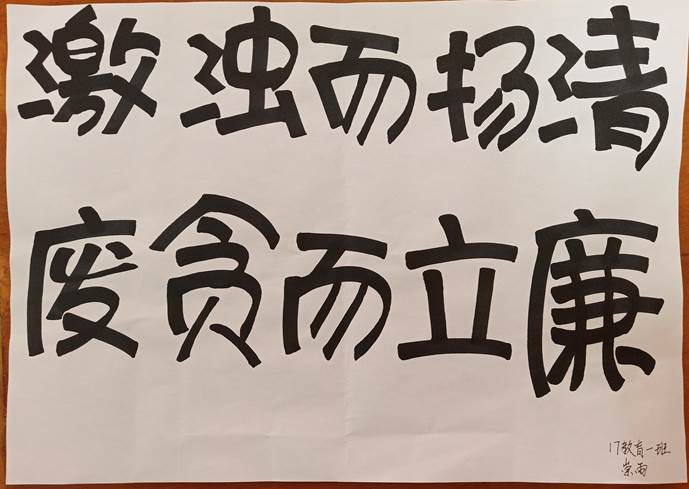 激浊而扬清
废贪而立廉
17教育一班
崇雨